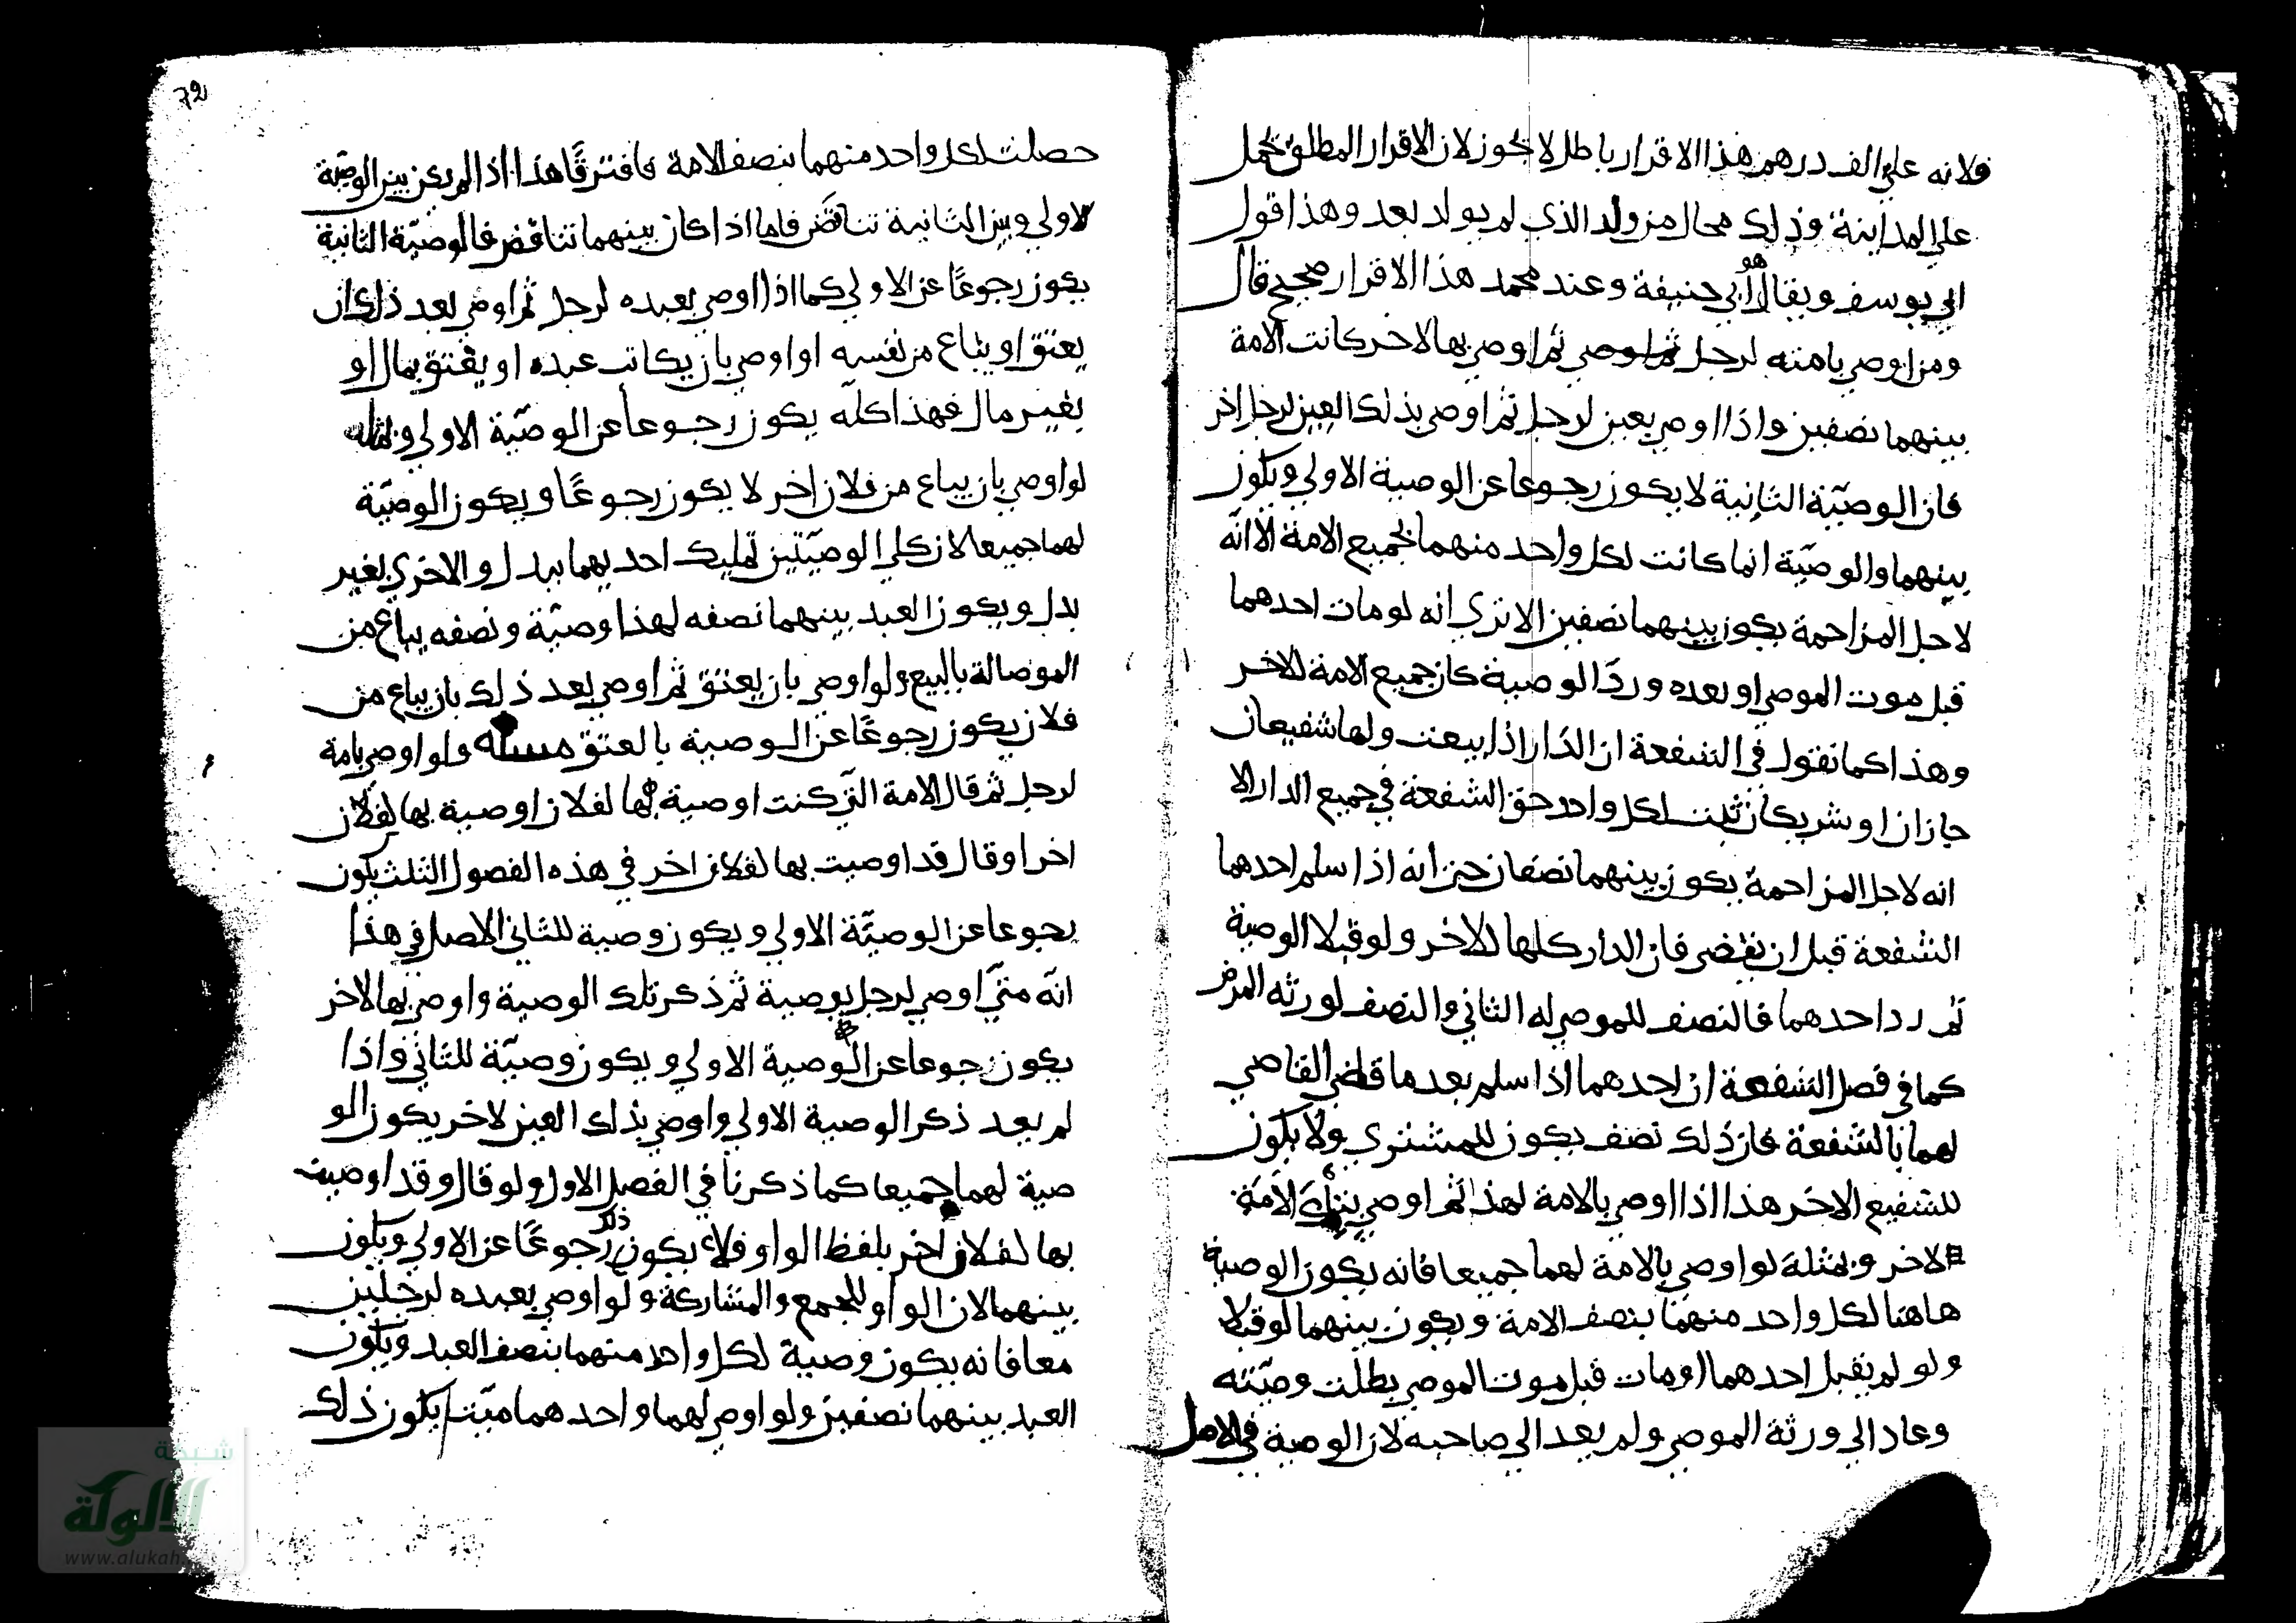 فلانه علي الف درهم هذا الاقرار باطل لا يجوز لان الاقرار المطلق يحمل
علي المداينة وذلك محال من ولد الذي لم يولد بعد وهذا قول
ابي يوسف ويقال هو أبي حنيفة وعند محمد هذا الاقرار صحيح قال
ومن اوصي بامته لرجل ثم اوصي بها لاخر كانت الامة
بينهما نصفين واذا اوصي بعين لرجل ثم اوصي بذلك العين لرجل اخر
فان الوصيّة الثانية لا يكون رجوعا عن الوصية الاولي ويكون
بينهما والوصيّة انما كانت لكل واحد منهما بجميع الامة الا انّه
لاجل المزاحمة يكون بينهما نصفين الا تري انه لو مات احدهما
قبل موت الموصي او بعده وردّ الوصية كان جميع الامة للاخر
وهذا كما نقول في الشفعة ان الدّار اذا بيعت ولها شفيعان
جازان او شريكان ثبت لكل واحد حق الشفعة في جميع الدار الا
انه لاجل المزاحمة يكون بينهما نصفان حتي انه اذا سلم احدهما
الشفعة قبل ان يقضي فان الدار كلها للاخر ولو قبلا الوصية
ثم رد احدهما فالنصف للموصي له الثاني والنصف لورثه
كما في فصل الشفعة ان احدهما اذا سلم بعد ما قضي القاضي
لهما بالشفعة فان ذلك نصف يكون للمشتري ولا يكون
للشفيع الاخر هذا اذا اوصي بالامة لهذا ثم اوصي بتلك الامة
لاخر وبمثله لو اوصي بالامة لهما جميعا فانه يكون الوصية
هاهنا لكل واحد منهما بنصف الامة ويكون بينهما لو قبلا
ولو لم يقبل احدهما او مات قبل موت الموصي بطلت وصيّته
وعاد الي ورثة الموصي ولم يعد الي صاحبه لان الوصية في الاصل
72
حصلت لكل واحد منهما بنصف الامة فافترقا هذا اذا لم يكن بين الوصيّة
الاولي وبين الثانية تناقض فاما اذا كان بينهما تناقض فالوصيّة الثانية
يكون رجوعًا عن الاولي كما اذا اوصي بعبده لرجل ثم اوصي بعد ذلك ان
يعتق او يباع من نفسه او اوصي بان يكاتب عبده او يعتق بمال او
بغير مال فهذا كله يكون رجوعا عن الوصيّة الاولي وبمثله
لو اوصي بان يباع من فلان اخر لا يكون رجوعًا ويكون الوصيّة
لهما جميعا لان كلي الوصيّتين تمليك احديهما ببدل والاخري بغير
بدل ويكون العبد بينهما نصفه لهذا وصيّة ونصفه يباع من
الموصالة بالبيع ولو اوصي بان يعتق ثم اوصي بعد ذلك بان يباع من
فلان يكون رجوعًا عن الوصية بالعتق مسئله ولو اوصي بامة
لرجل ثم قال الامة التي كنت اوصية بها لفلان اوصية بها لفلان
اخر او قال قد اوصيت بها لفلان اخر في هذه الفصول الثلث يكون
رجوعا عن الوصيّة الاولي ويكون وصية للثاني الاصل في هذا
انّه متيّ اوصي لرجل بوصية ثم ذكر تلك الوصية واوصي بها لاخر
يكون رجوعا عن الوصية الاولي ويكون وصيّة للثاني واذا
لم يعد ذكر الوصية الاولي واوصي بذلك العين لاخر يكون الو
صية لهما جميعا كما ذكرنا في الفصل الاول ولو قال وقد اوصيت
بها لفلان اخر بلفظ الواو فلا يكون ذلك رجوعًا عن الاولي ويكون
بينهما لان الواو للجمع والمشاركة ولو اوصي بعبده لرجلين
معا فانه يكون وصية لكل واحد منهما بنصف العبد ويكون
العبد بينهما نصفين ولو اوصي لهما واحدهما ميّت يكون ذلك
شبكة
الألوكة
www.alukah.